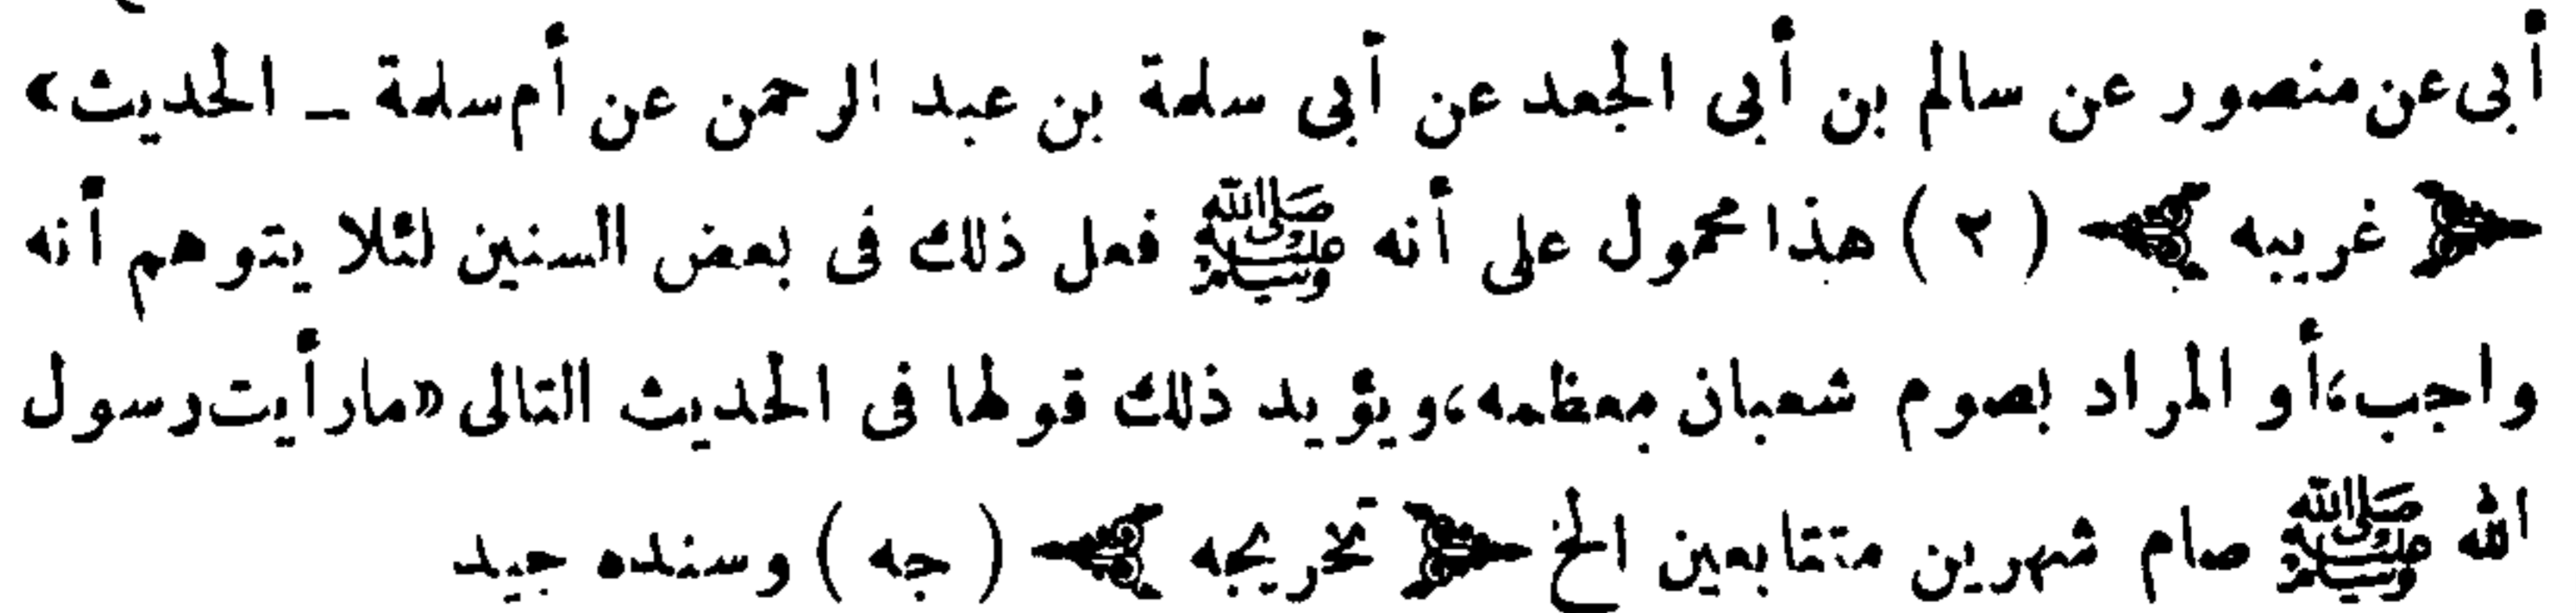 أبى عن منصور عن سالم بن أبى الجعد عن أبى سلمة بن عبد الرحمن عن أم سلمة ــ الحديث»
﴿ غريبه ﴾ (٢) هذا محمول على أنه ﷺ فعل ذلك فى بعض السنين لئلا يتوهم أنه
واجب، أو المراد بصوم شعبان معظمه، ويؤيد ذلك قولها فى الحديث التالى «ما رأيت رسول
الله ﷺ صام شهرين متتابعين الخ ﴿ تخريجه ﴾ (جه) وسنده جيد